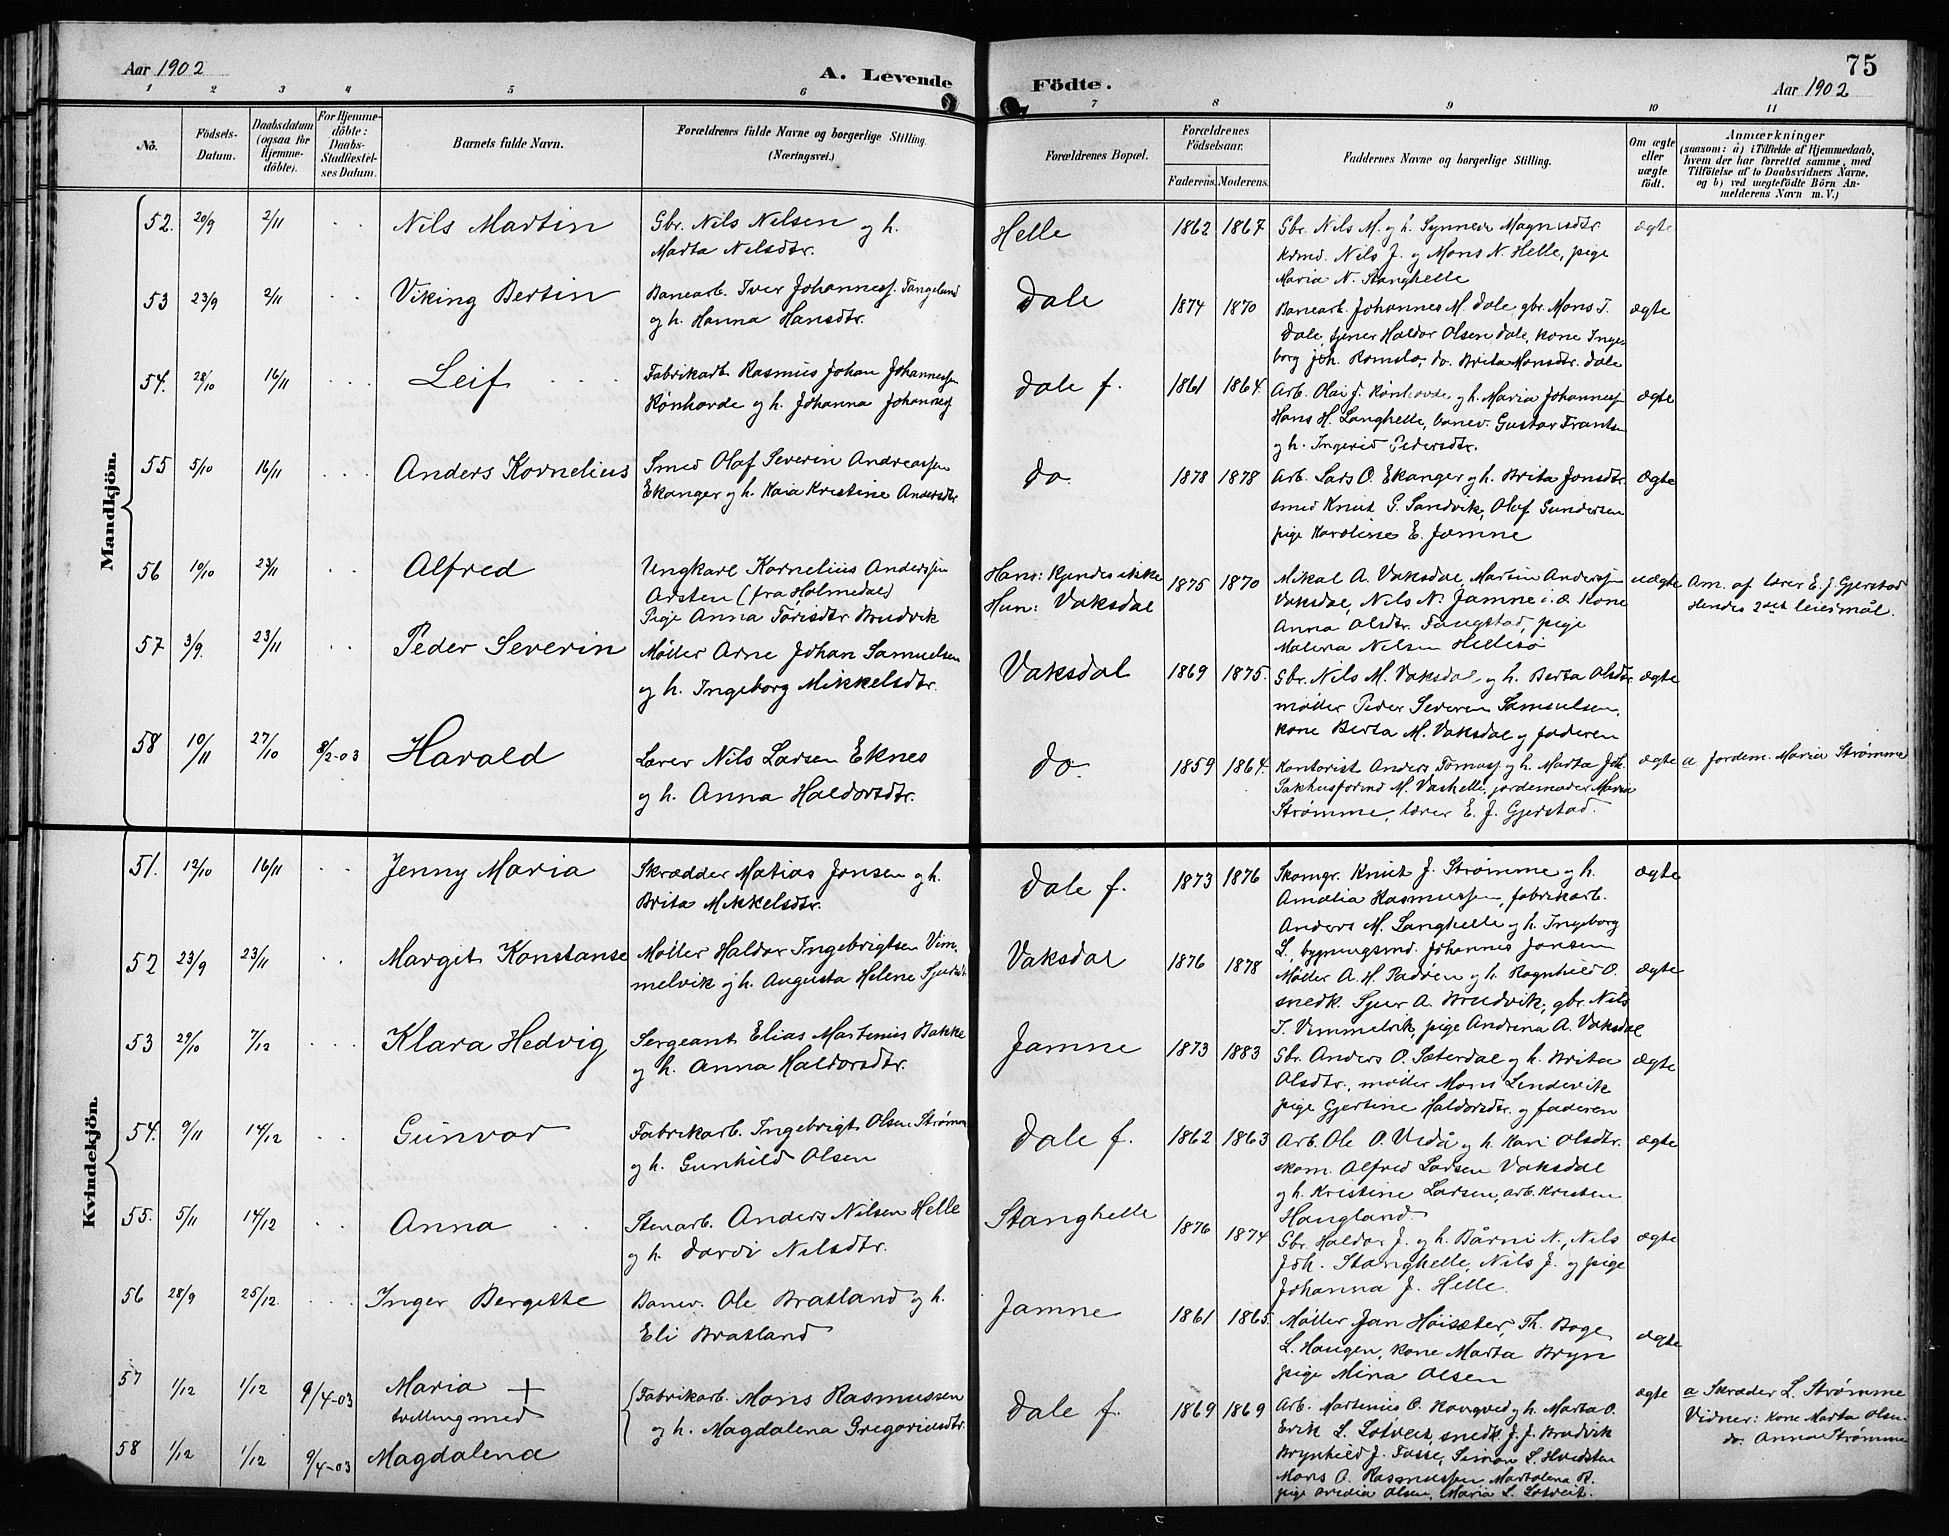 Aar 1902
A. Levende
Födte.
75
Aar 1902
1 2 3 4 5 6 7 8 9 10 11
No.
Födsels-
Datum.
Daabsdatum
(ogsaa for
Hjemme-
döbte).
For Hjemme-
döbte:
Daabs-
Stadfæstel-
ses Datum.
Barnets fulde Navn.
Forældrenes fulde Navne og borgerlige Stilling.
(Næringsvei.)
Forældrenes Bopæl.
Forældrenes
Födselsaar.
Faderens. Moderens.
Faddernes Navne og borgerlige Stilling.
Om ægte
eller
uægte
födt.
Anmærkninger
(saasom: a) i Tilfælde af Hjemmedaab,
hvem der har forrettet samme, med
Tilföielse af to Daabsvidners Navne.
og b) ved uægtefödte Börn An-
melderens Navn m. V.)
Mandkjön.
52. 20/9 2/11 Nils Martin
Gbr. Nils Nilsen og h.
Marta Nilsdtr.
Helle 1862 1867
Gbr. Nils M. og h. Synneve Magnisdtr.
Nils J. og Mons N. Helle, pige
Maria N. Stanghelle
ægte
53 23/9 2/11 Viking Bertin
Banearb. Iver Johanness. Tangeland
og h. Hanna Hansdtr.
Dale 1874 1870
Banearb. Johannes M. Dale, gbr. Mons I.
Dale, tjener Haldor Olsen Dale, kone Inge-
borg Joh. Romslo, do. Brita Monsdtr. Dale
ægte
54. 28/10 16/11 Leif
Fabrikarb. Rasmus Johan Johannessen
Rønhovde og h. Johanna Johannesd
Dale f. 1861 1864.
Arb. Olai J. Rønhovde og h. Maria Johannesd
Hans H. Langhelle, banev. Gustav Frantsen
og h. Ingerid Pedersdtr.
ægte
55 5/10 16/11 Anders Kornelius
Smed Olaf Severin Andreassen
Ekanger og h. Kaia Kristine Andersdtr
do. 1878 1878
Arb. Lars O. Ekanger og h. Brita Jonsdtr.
smed Knut G. Sandvik, Olaf Gundersen
pige Karoline E. Jamne
ægte
56 10/10 23/11 Alfred
Ungkarl Kornelius Anderssen
Arsten (fra Holmedal)
Pige Anna Torisdtr Brudvik
Hans: Kjendes ikke
Hun: Vaksdal
1875 1870
Mikal A. Vaksdal, Martin Anderssen
Vaksdal, Nils N. Jamne i. æ. Kone
Anna Olsdtr. Faugstad, pige
Malena Nilsen Hellesø
uægte
Am. af lærer E. J. Gjerstad
Hendes 2det leiermål.
57 3/9. 23/11 Peder Severin
Møller Arne Johan Samuelsen
og h. Ingeborg Mikkelsdtr.
Vaksdal 1869 1875.
Gbr. Nils M. Vaksdal og h. Berta Olsdtr.
møller Peder Severin Samuelsen,
kone Berta M. Vaksdal og faderen
ægte
58 10/11 27/10 8/2-03 Harald
Lærer Nils Larsen Eknes
og h. Anna Haldorsdtr.
do. 1859 1864.
Kontorist Anders Tomass. og h. Marta Joh.
Pakhusformd M. Vashelle, jordemoder Maria
Strømme, lærer E. J. Gjerstad.
ægte
a Jordem. Maria Strømme
Kvindekjön.
51. 12/10 16/11 Jenny Maria
Skrædder Matias Jonsen og h.
Brita Mikkelsdtr.
Dale f. 1873 1876
Skomgr. Knut J. Strømme og h.
Amalia Rasmussen, fabrikarb.
Anders M. Langhelle og h. Ingeborg
L., bygningsmd. Johannes Jonsen
ægte
52 23/9 23/11 Margit Konstanse
Møller Haldor Ingebrigtsen Vim-
melvik og h. Augusta Helene Sjursdt
Vaksdal 1876 1878
Møller A. H. Padøen og h. Ragnhild O.
snedk. Sjur A. Brudvik, gbr. Nils
T. Vimmelvik, pige Andrina A. Vaksdal
ægte
53 29/10 7/12 Klara Hedvig
Sergeant Elias Martinius Bakke
og h. Anna Haldorsdtr.
Jamne 1873 1883
Gbr. Anders O. Sæterdal og h. Brita
Olsdtr., møller Mons Lindevik
pige Gjertine Haldorsdtr. og faderen
ægte
54. 9/11 14/12 Gunvor
Fabrikarb. Ingebrigt Olsen Strømm
og h. Gunhild Olsen
Dale f. 1862 1863
Arb. Ole O. Vedå og h. Kari Olsdtr.
skom. Alfred Larsen Vaksdal
og h. Kristine Larsen, arb. Kristen
Haugland.
ægte
55. 5/11 14/12 Anna
Stenarb. Anders Nilsen Helle
og h. Dordi Nilsdtr.
Stanghelle 1876 1874
Gbr. Haldor J. og h. Bårni N., Nils
Joh. Stanghelle, Nils J. og pige
Johanna J. Helle.
ægte
56 28/9 25/12. Inger Bergitte
Banev. Ole Bratland og h.
Eli Bratland
Jamne 1861 1865.
Møller Jan Høisæter, Th. Boge
L. Haugen, kone Marta Bryn
pige Mina Olsen
ægte
57 1/12 1/12 9/4-03 Maria +
tvilling med
Fabrikarb. Mons Rasmussen
og h. Magdalena Gregoriusdtr.
Dale f. 1869 1869
Arb. Martinius O. og h. Marta O.
Erik L. Lotveit, snedk. J. J. Brudvik
Brynhild J. Fosse, Simon L. Hvidsten
Mons A. Rasmussen, Martalena R.
pige Oredia Olsen, Maria L. Lotveit.
ægte
a Skræder L. Strømme
Vidner: kone Marta Olsn.
do. Anna Strømme
58 1/12 1/12 9/4-03 Magdalena